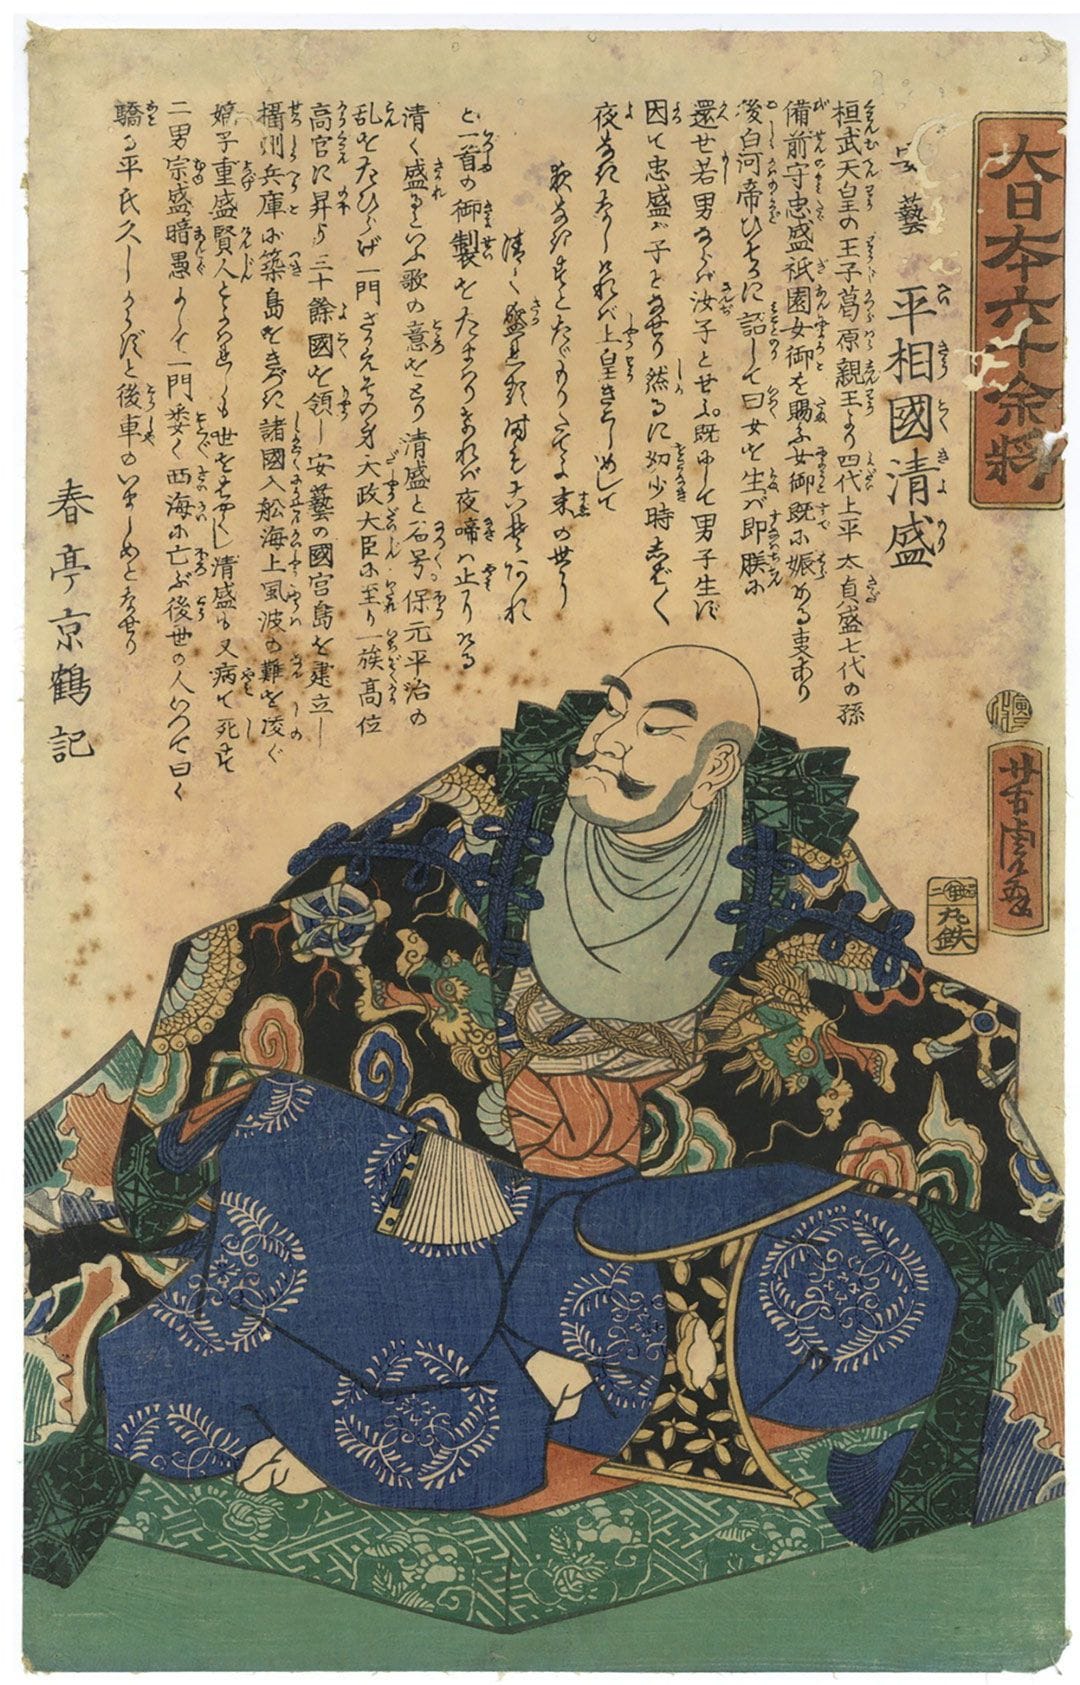 大日本六十余将
藝
平相國清盛
桓武天皇の王子葛原親王より四代上平太貞盛七代の孫
備前守忠盛祇園女御を賜ふ女御既に娠める事あり
後白河帝ひそかに詔して曰女を生バ即朕に
還せ若男ならバ汝子とせよ既にして男子生ず
因て忠盛が子となせり然るに幼少時
夜なきなしければ上皇きこしめして
夜なきすとたゞもりたてよ末の世に
清く盛ふる
と一首の御製をたまわりければ夜啼ハ止りける
清く盛といふ歌の意をとり清盛と名号く保元平治の
乱をたひらげ一門さかえその身大政大臣に至り一族高位
高官に昇り三十餘國を領し安藝の國宮島を建立し
攝州兵庫に築島をきづき諸國入舩海上風波の難を凌ぐ
嫡子重盛賢人と世を清盛も又病て死す
二男宗盛暗愚にして一門悉く西海に亡ぶ後世の人いつて曰く
驕る平氏久しからずと後車のいましめとなせり
春亭京鶴記
芳虎画
丸鉄